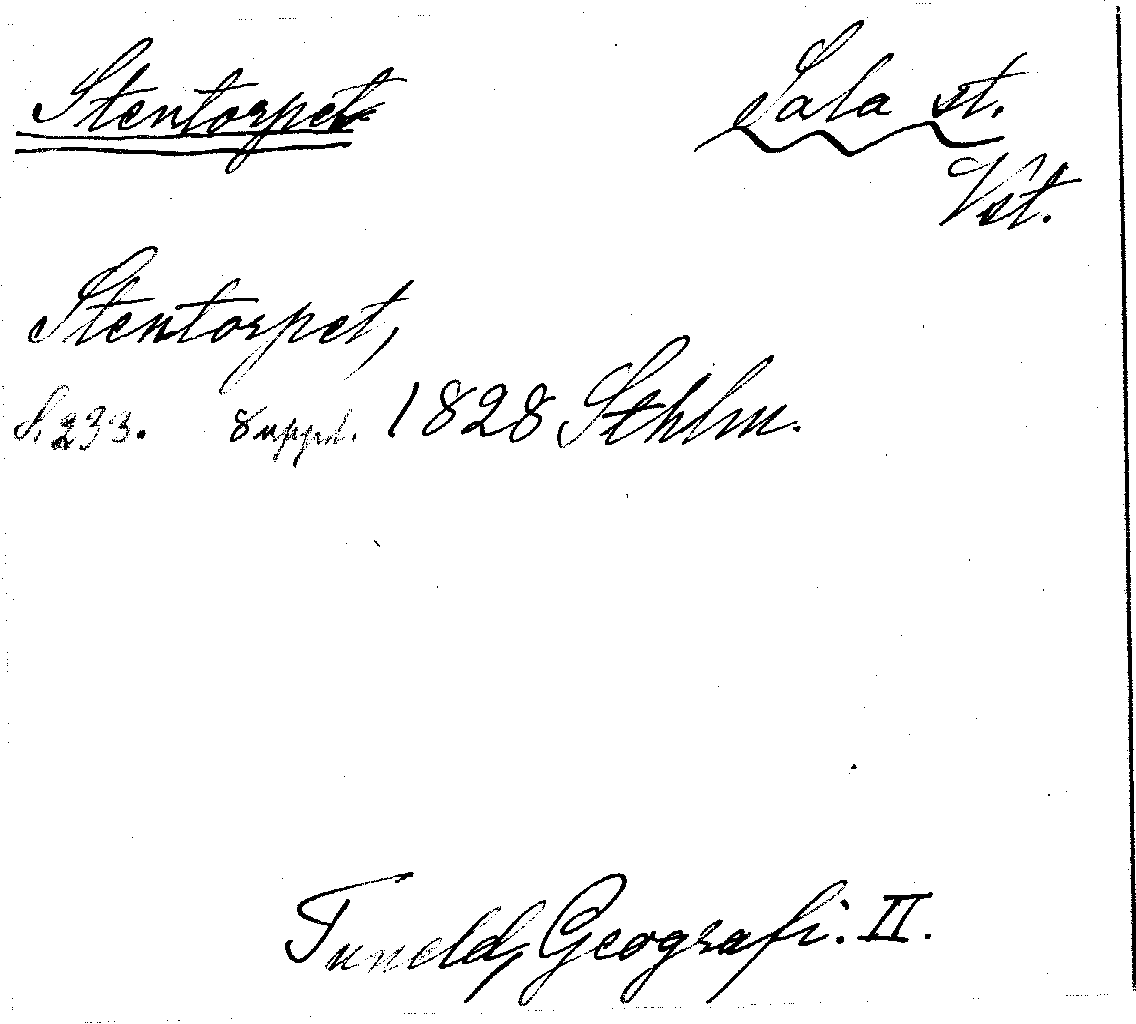 Stentorpet
Sala st.
Vst.
Stentorpet,
S. 233. Suppl. 1828 Sthlm.
Tuneld, Geografi. II.